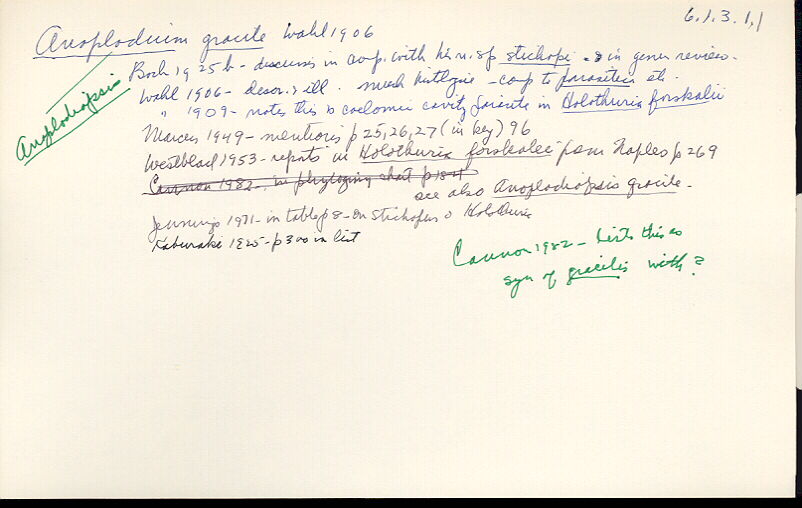 6.1.3.1.1
Anoplodium gracile Wahl 1906
Anoplodiopsis
Bock 1925b - discusses in comp. with his n. sp stichopi - & in gener review.
Wahl 1906 - descr. & ill. much histologie - comp to parasitica etc.
" 1909 - notes this is coelomic cavity parasite in Holothuria forskalii
Marcus 1949 - mentions p 25, 26, 27 (in key) 96
Westblad 1953 - reports in Holothuria forskalii from Naples p 269
Cannon 1982 - in phylogeny chart
see also Anoplodiopsis gracile.
Jennings 1971 - in table p 8 - in Stichopus & Holothuria
Kaburaki 1925 - p 300 in list
Cannon 1982 - Lists this as
syn of gracilis with ?